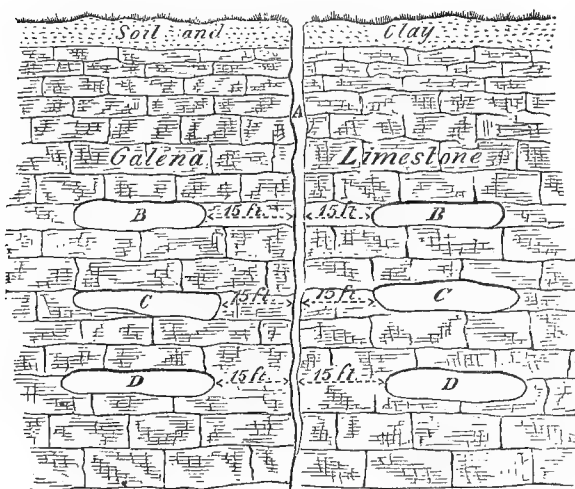 Soil and Clay
A
Galena Limestone
B 15 ft. 15 ft. B
C 15 ft. 15 ft. C
D 15 ft. 15 ft. D